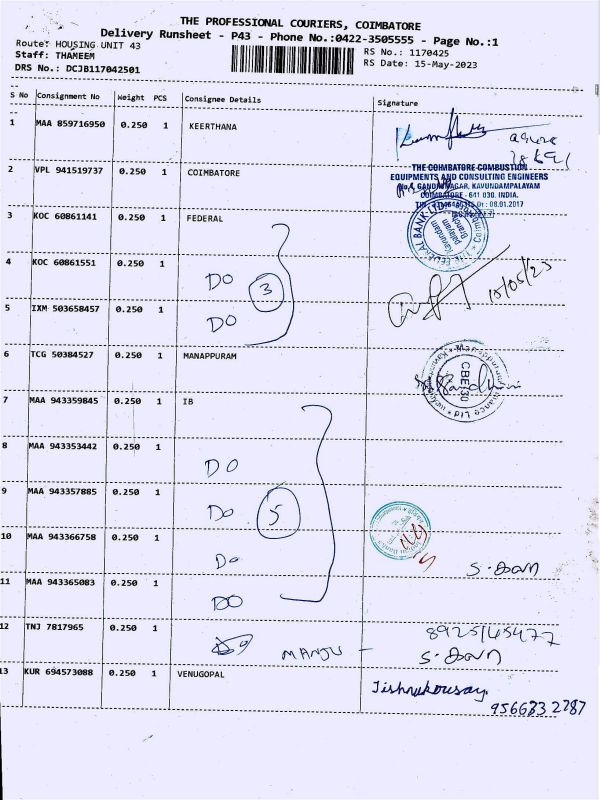 THE PROFESSIONAL COURIERS, COIMBATORE
Delivery Runsheet - P43 - Phone No.:0422-3505555 - Page No.:1
Route: HOUSING UNIT 43
RS No.: 1170425
Staff: THAMEEM
RS Date: 15-May-2023
DRS No.: DCJB117042501
S No Consignment No Weight PCS Consignee Details Signature
1 MAA 859716950 0.250 1 KEERTHANA
2 VPL 941519737 0.250 1 COIMBATORE
THE COIMBATORE COMBUSTION
EQUIPMENTS AND CONSULTING ENGINEERS
KAVUNDAMPALAYAM
COIMBATORE - 641 030. INDIA.
08.01.2017
3 KOC 60861141 0.250 1 FEDERAL
THE FEDERAL BANK LTD
Branch
4 KOC 60861551 0.250 1 DO 3
15/05/23
5 IXM 503658457 0.250 1 DO
6 TCG 50384527 0.250 1 MANAPPURAM
CBE
7 MAA 943359845 0.250 1 IB
8 MAA 943353442 0.250 1 DO
9 MAA 943357885 0.250 1 DO 5
10 MAA 943366758 0.250 1 Do
11 MAA 943365083 0.250 1 DO
12 TNJ 7817965 0.250 1 MANJU -
13 KUR 694573088 0.250 1 VENUGOPAL